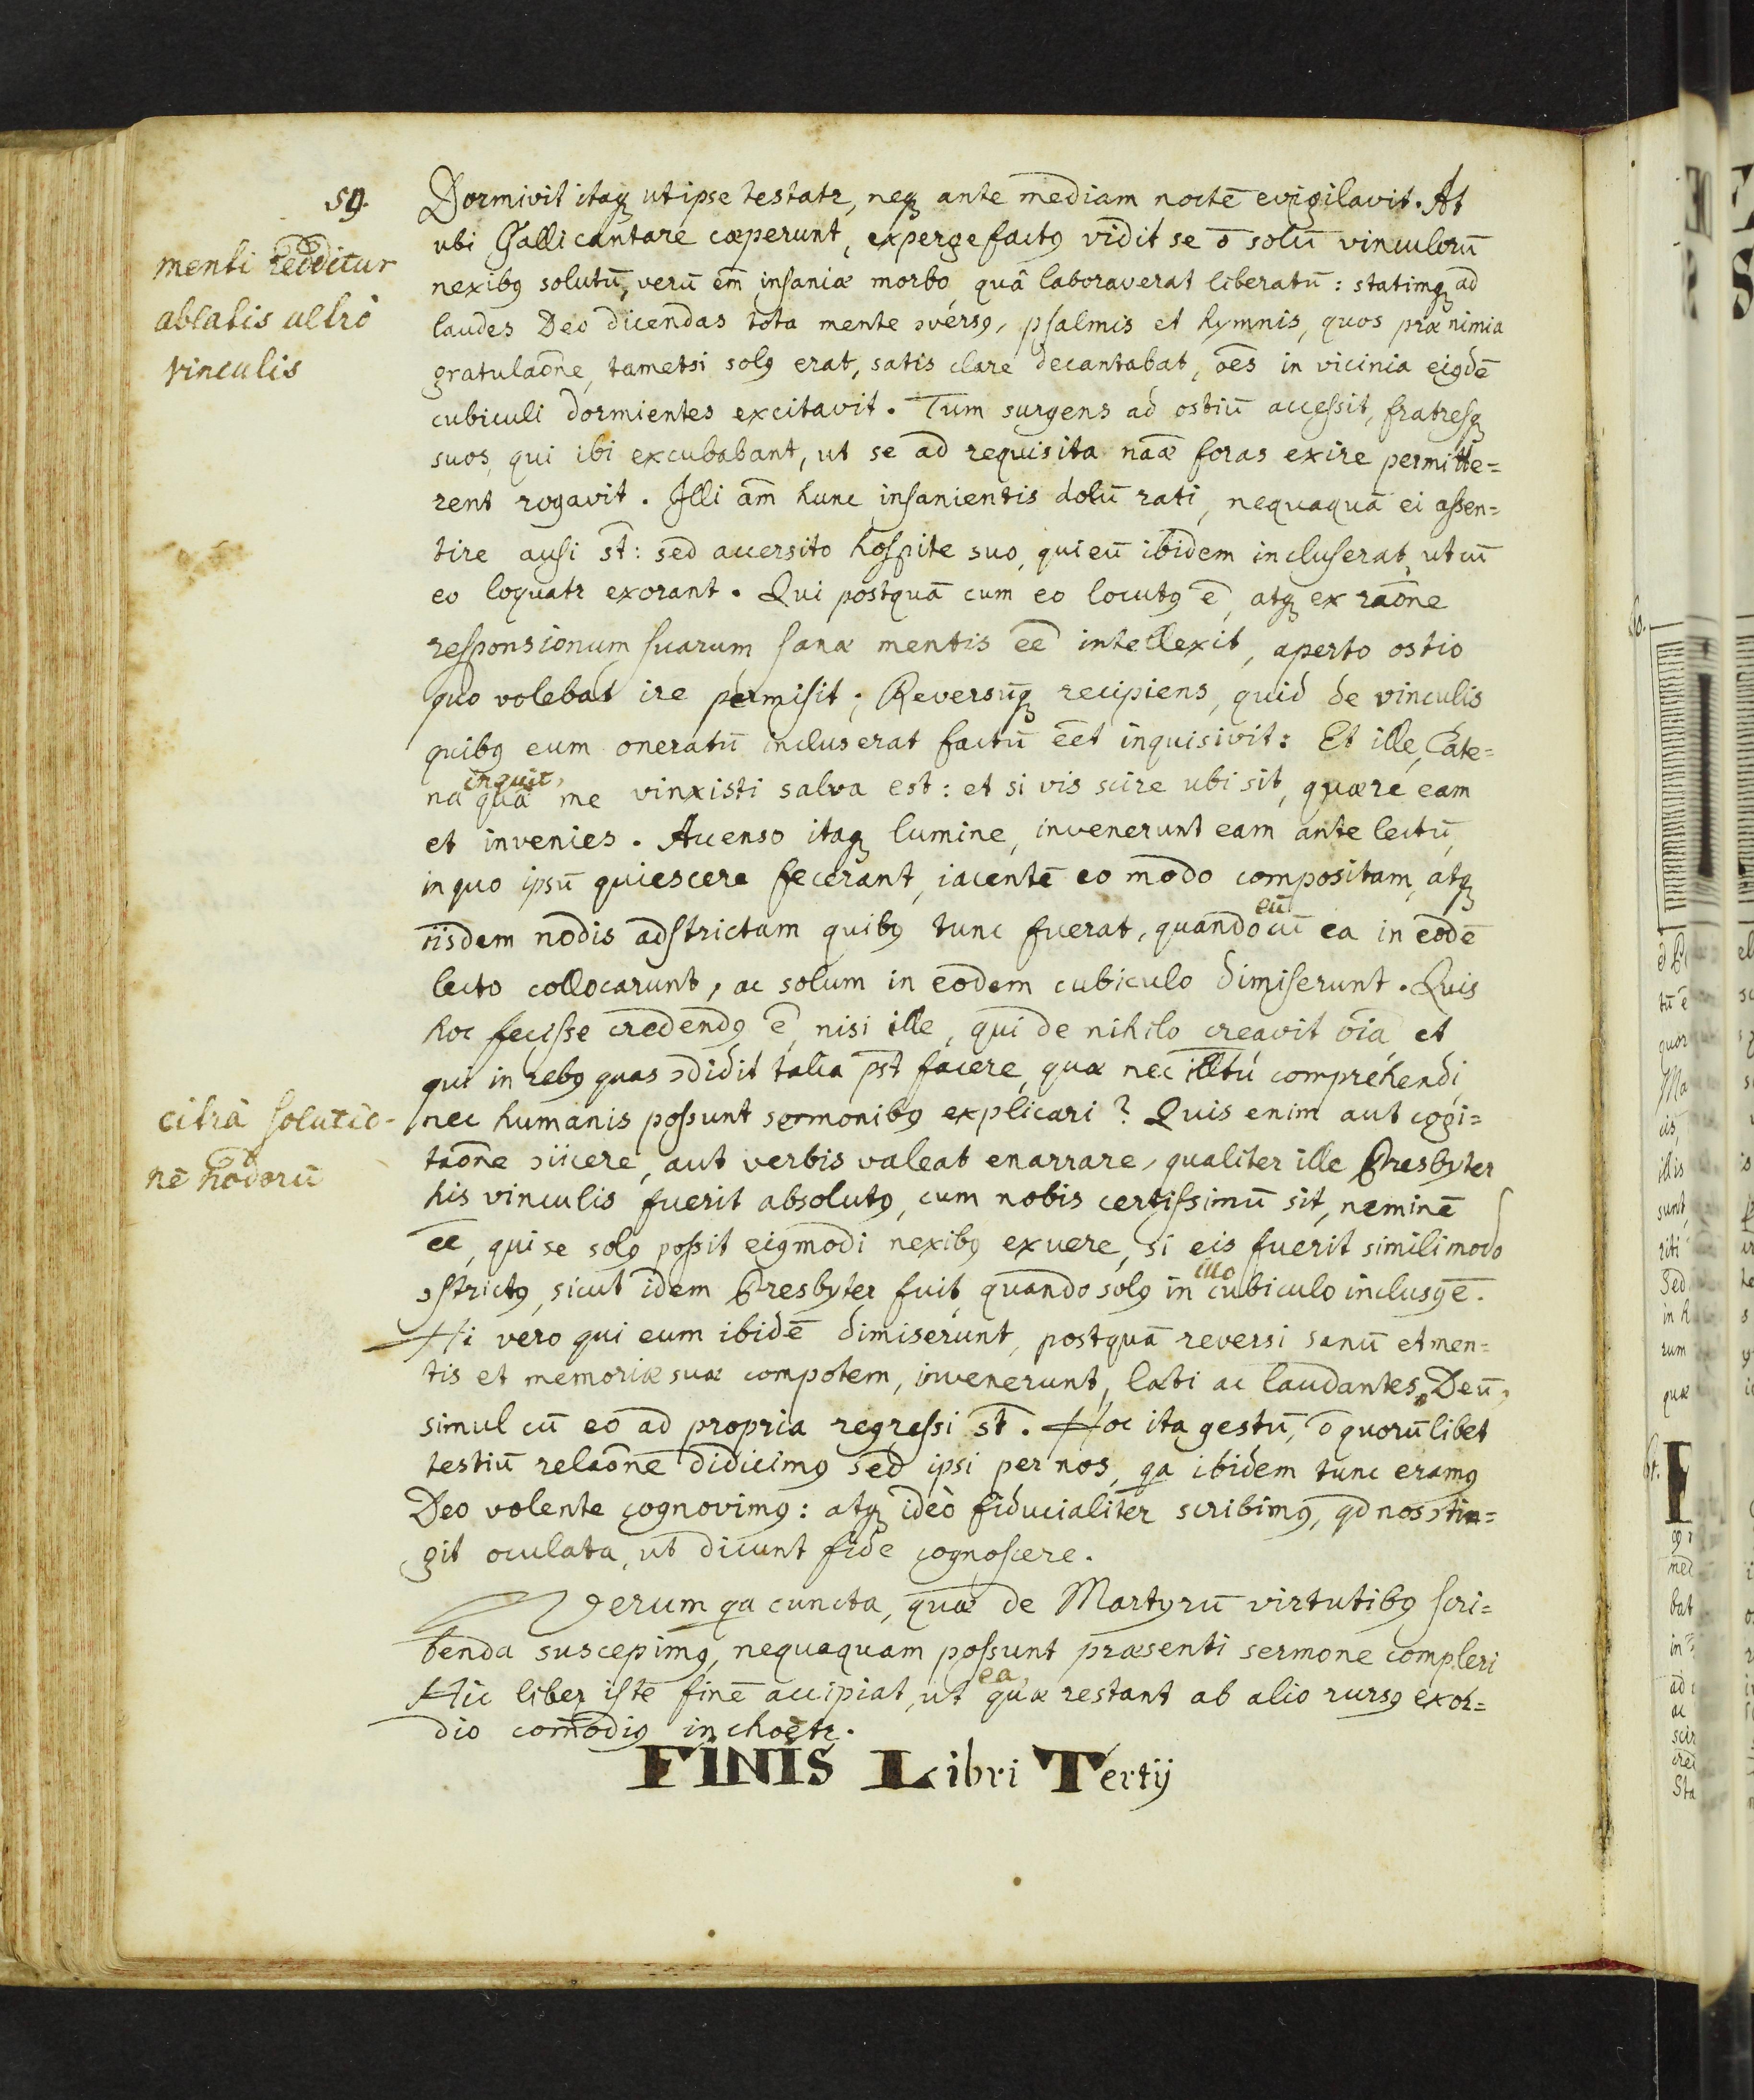 59.
menti redditur
ablatis ultrò
vinculis
Dormivit itaq; ut ipse testatr, neq; ante mediam noctē evigilavit. At
ubi Galli cantare cæperunt, expergefactꝰ vidit se ō solū vinculorū
nexibꝰ solutū, verū em̄ insaniæ morbo, quâ laboraverat liberatū: statimq; ad
laudes Deo dicendas tota mente ↄversꝰ, psalmis et hymnis, quos præ nimia
gratulaōne, tametsi solꝰ erat, satis clare decantabat, ōes in vicinia eiꝰdē
cubiculi dormientes excitavit. Tum surgens ad ostiū accessit, fratresq;
suos, qui ibi excubabant, ut se ad requisita nāæ foras exire permitte=
rent rogavit. Illi am̄ hunc insanientis dolū rati, nequaquā ei assen=
tire ausi st̄: sed accersito hospite suo, qui eū ibidem incluserat, ut cū
eo loquatr exorant. Qui postquā cum eo locutꝰ ē, atq; ex raōne
responsionum suarum sanæ mentis ēē intellexit, aperto ostio
quo volebat ire permisit; Reversūq; recipiens, quid de vinculis
quibꝰ eum oneratū incluserat factū ēēt inquisivit: Et ille, Cate=
na inquit, quâ me vinxisti salva est: et si vis scire ubi sit, quære eam
et invenies. Accenso itaq; lumine, invenerunt eam ante lectū,
in quo ipsū quiescere fecerant, iacentē eo modo compositam, atq;
iisdem nodis adstrictam quibꝰ tunc fuerat, quando eū cū ea in eodē
lecto collocarunt, ac solum in eodem cubiculo dimiserunt. Quis
hoc fecisse credendꝰ ē, nisi ille, qui de nihilo creavit oīa et
qui in rebꝰ quas ↄdidit talia pst̄ facere, quæ nec illtú comprehendi,
nec humanis possunt sermonibꝰ explicari? Quis enim aut cogi=
citrà solutio-
nē nodorū
taōne ↄiicere, aut verbis valeat enarrare, qualiter ille Presbyter
his vinculis fuerit absolutꝰ, cum nobis certissimū sit, neminē
ēē, qui se solꝰ possit eiꝰmodi nexibꝰ exuere, si eis fuerit simili modo
ↄstrictꝰ, sicut idem Presbyter fuit, quando solꝰ in illo cubiculo inclusꝰ ē.
Hi vero qui eum ibidē dimiserunt, postquā reversi sanū et men=
tis et memoriæ suæ compotem, invenerunt, læti ac laudantes Deū,
simul cū eo ad propria regressi st̄. Hoc ita gestū, ō quorūlibet
testiū relaōne didicimꝰ sed ipsi per nos, qa ibidem tunc eramꝰ
Deo volente cognovimꝰ: atq; ideò fiducialiter scribimꝰ, qd nos ↄtin=
git oculata, ut dicunt fide cognoscere.
Verum qa cuncta, quæ de Martyrū virtutibꝰ scri=
benda suscepimꝰ, nequaquam possunt præsenti sermone compleri
Hic liber iste finē accipiat, ut ea quæ restant ab alio rursꝰ exor=
dio com̄odiꝰ inchoetr.
FINIS Libri Tertij